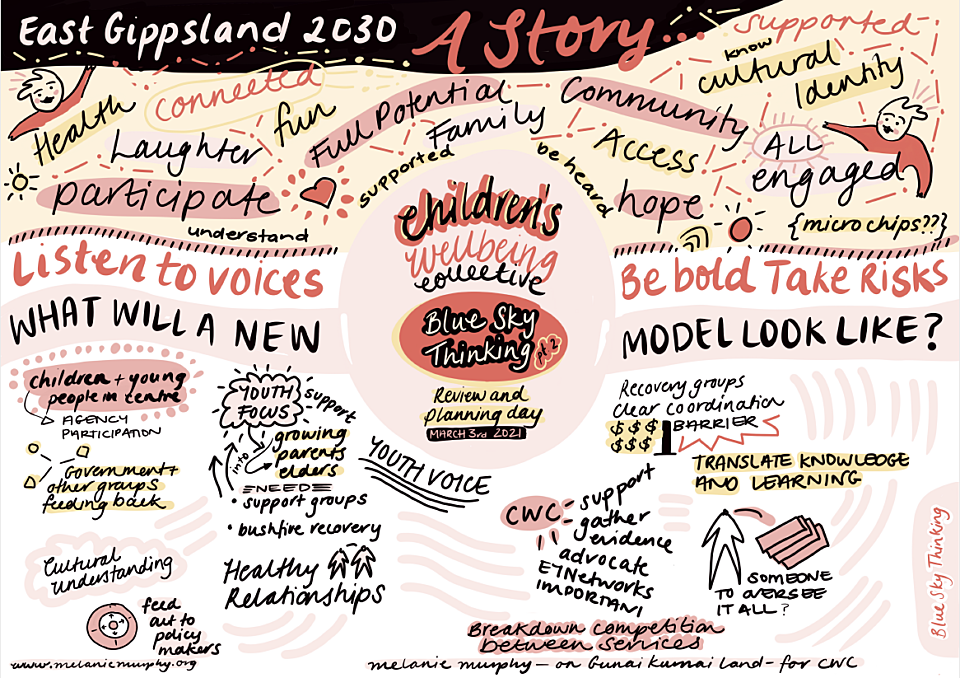 East Gippsland 2030
A Story...
supported
know
cultural
Identity
Health
connected
fun
Full Potential
Family
Community
Laughter
Access
ALL
engaged
participate
supported
be heard
hope
understand
{microchips??}
children's
wellbeing
collective
Blue Sky
Thinking pt 2
Review and
planning day
MARCH 3rd 2021
Listen to voices
Be bold Take Risks
WHAT WILL A NEW
MODEL LOOK LIKE?
children + young
people in centre
AGENCY
PARTICIPATION
Government +
other groups
feeding back
Cultural
understanding
feed
out to
policy
makers
www.melaniemurphy.org
YOUTH
FOCUS
support
into
growing
parents
elders
NEED
• support groups
• bushfire recovery
YOUTH VOICE
Healthy
Relationships
Recovery groups
clear coordination
$ $ $
$ $ $
BARRIER
TRANSLATE KNOWLEDGE
AND LEARNING
CWC - support
gather
evidence
advocate
EYNetworks
IMPORTANT
SOMEONE
TO OVERSEE
IT ALL?
Breakdown competition
between services
Blue Sky Thinking
melanie murphy - on Gunai Kurnai Land - for CWC